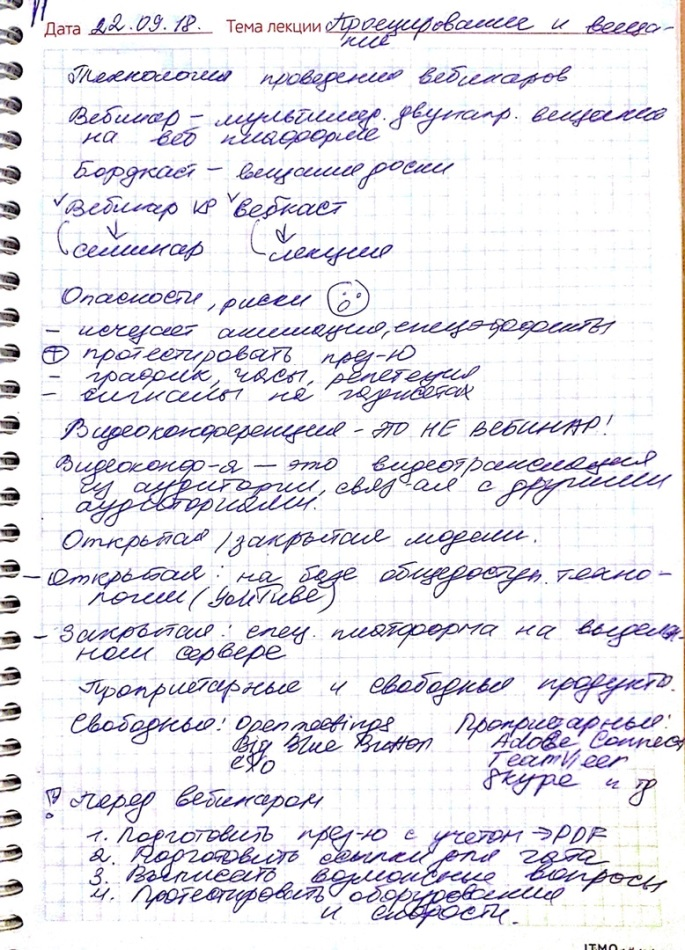 Дата 22.09.18. Тема лекции Проецирование и веща-
ние
Технология проведения вебинаров
Вебинар – мультимед. двунапр. вещание
на веб платформе
Бордкаст – вещание доски
Вебинар vs Вебкаст
семинар лекция
Опасности, риски
- исчезает анимация, спецэффекты
+ протестировать през-ю
- график, часы, репетеция
- сигналы на гаджетах
Видеоконференция - ЭТО НЕ ВЕБИНАР!
Видеоконф-я – это видеотрансляция
из аудитории, связ-ая с другими
аудиториями.
Открытая / закрытая модели.
- Открытая: на базе общедоступ. техно-
логии (YouTube)
- Закрытая: спец. платформа на выделен-
ном сервере
Проприетарные и свободные продукты.
Свободные: Openmeetings Проприетарные:
Big Blue Button Adobe Connect
TeamVieer
Skype и тд
Перед вебинаром
1. Подготовить през-ю с учетом → PDF
2. Подготовить ссылки для чата
3. Выписать возможные вопросы
4. Протестировать оборудование
и скорости.